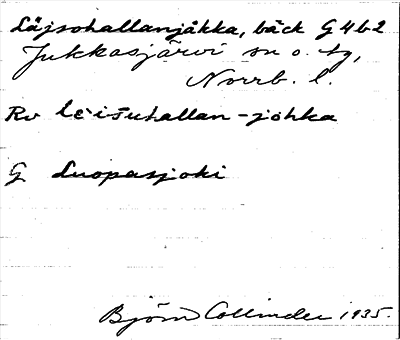 Läjsohallanjåkka, bäck G4b2
Jukkasjärvi sn o. tg,
Norrb. l.
Rv lèišuhallan-johka
G Luopasjoki
Björn Collinder 1935.